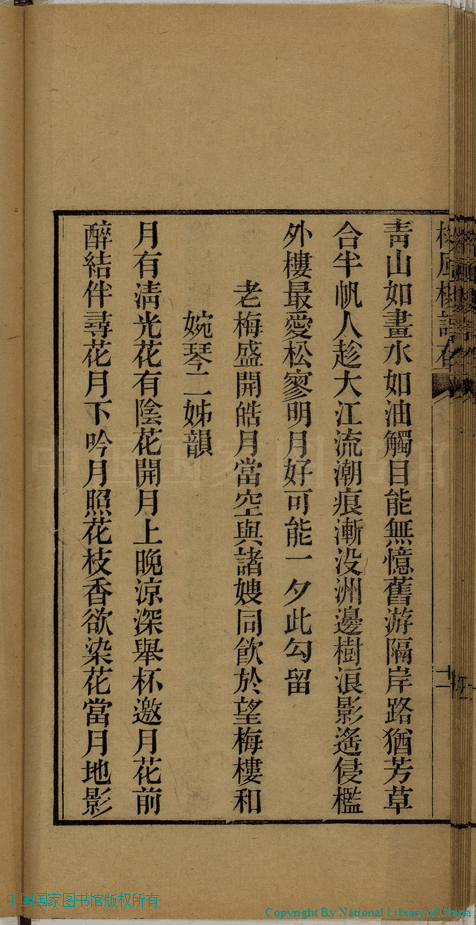 青山如畫水如油觸目能無憶舊游隔岸路猶芳草
合半帆人趁大江流潮痕漸没洲邊樹浪影遙侵檻
外樓最愛松寥明月好可能一夕此勾留
老梅盛開皓月當空與諸嫂同飲於望梅樓和
婉琴二姊韻
月有清光花有陰花開月上晚凉深舉杯邀月花前
醉結伴尋花月下吟月照花枝香欲染花當月地影
中国国家图书馆版权所有
Copyright By National Library of China